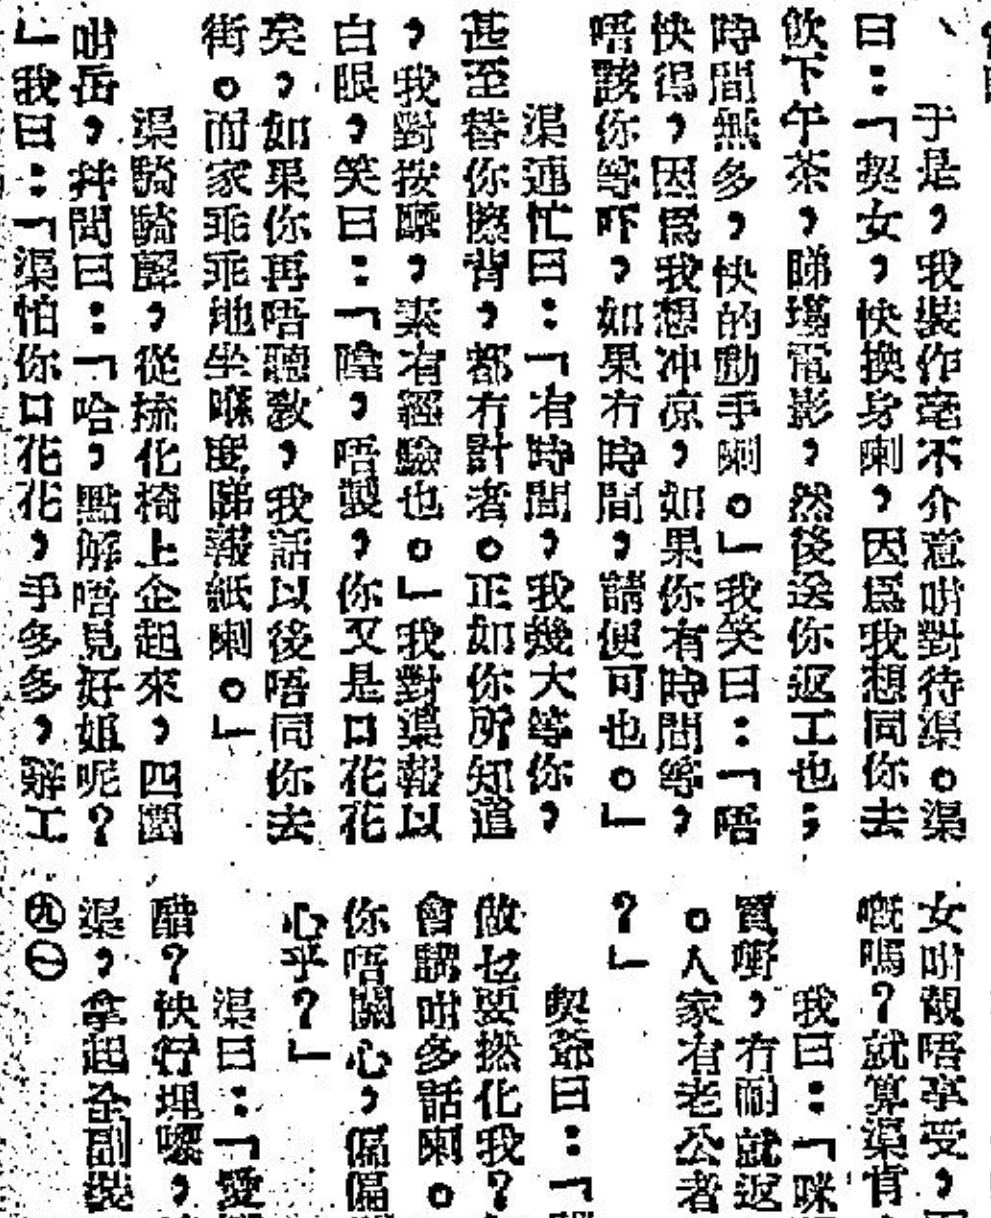 、于是，我裝作毫不介意咁對待渠。渠
曰：「契女，快換身喇，因爲我想同你去
飲下午茶，睇塲電影，然後送你返工也；
時間無多，快的動手喇。」我笑曰：「唔
快得，因爲我想冲凉，如果你有時間等，
唔該你等吓，如果冇時間，請便可也。」
渠連忙曰：「有時間，我幾大等你，
甚至替你擦背，都冇計者。正如你所知道
，我對按摩，素有經驗也。」我對渠報以
白眼，笑曰：「陰，唔製，你又是口花花
矣，如果你再唔聽教，我話以後唔同你去
街。而家乖乖地坐喺度睇報紙喇。」
渠騎騎聲，從梳化椅上企起來，四圍
咁岳，并問曰：「哈，點解唔見好姐呢？
」我曰：「渠怕你口花花，手多多，辭工
女咁靚唔享受，
嘅嗎？就算渠肯
我曰：「咪
質嘢，冇耐就返
。人家有老公者
？」
契爺曰：「
做乜要撚化我？
會認咁多話喇。
你唔關心，偏偏
心乎？」
渠曰：「愛
醋？快行埋嚟，
渠，拿起全副裝
㊈㊀